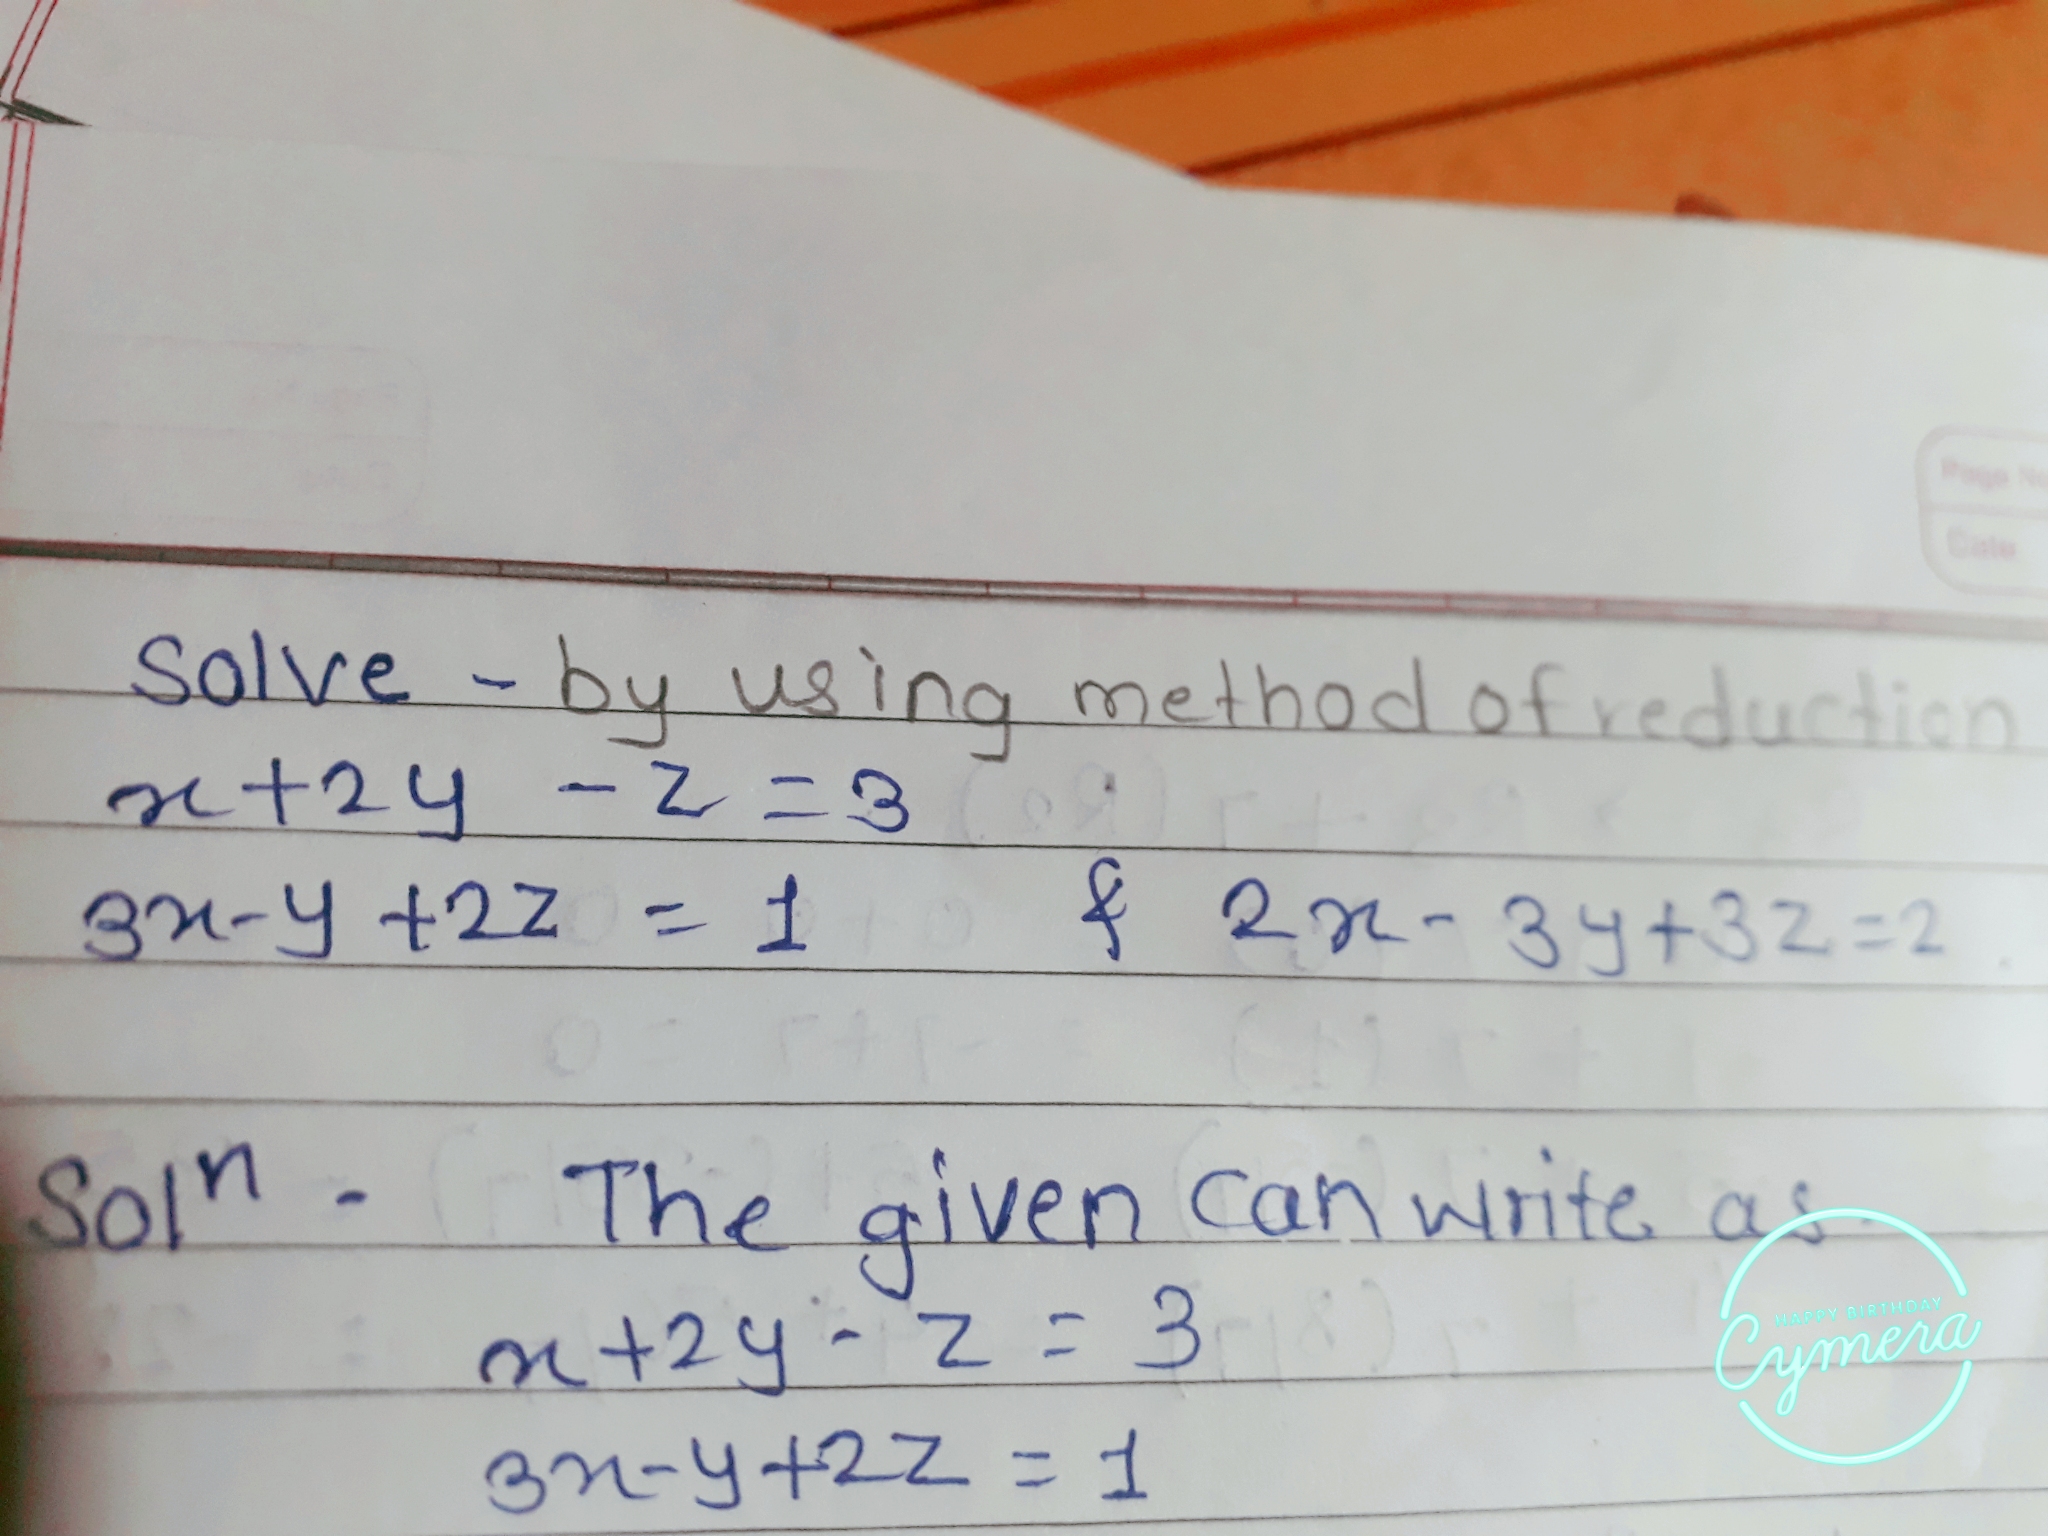 Page No
Date
Solve - by using method of reduction
x+2y - z = 3
3x-y+2z = 1 & 2x-3y+3z=2
Solⁿ - The given can write as
x+2y-z = 3
3x-y+2z = 1
HAPPY BIRTHDAY
Cymera